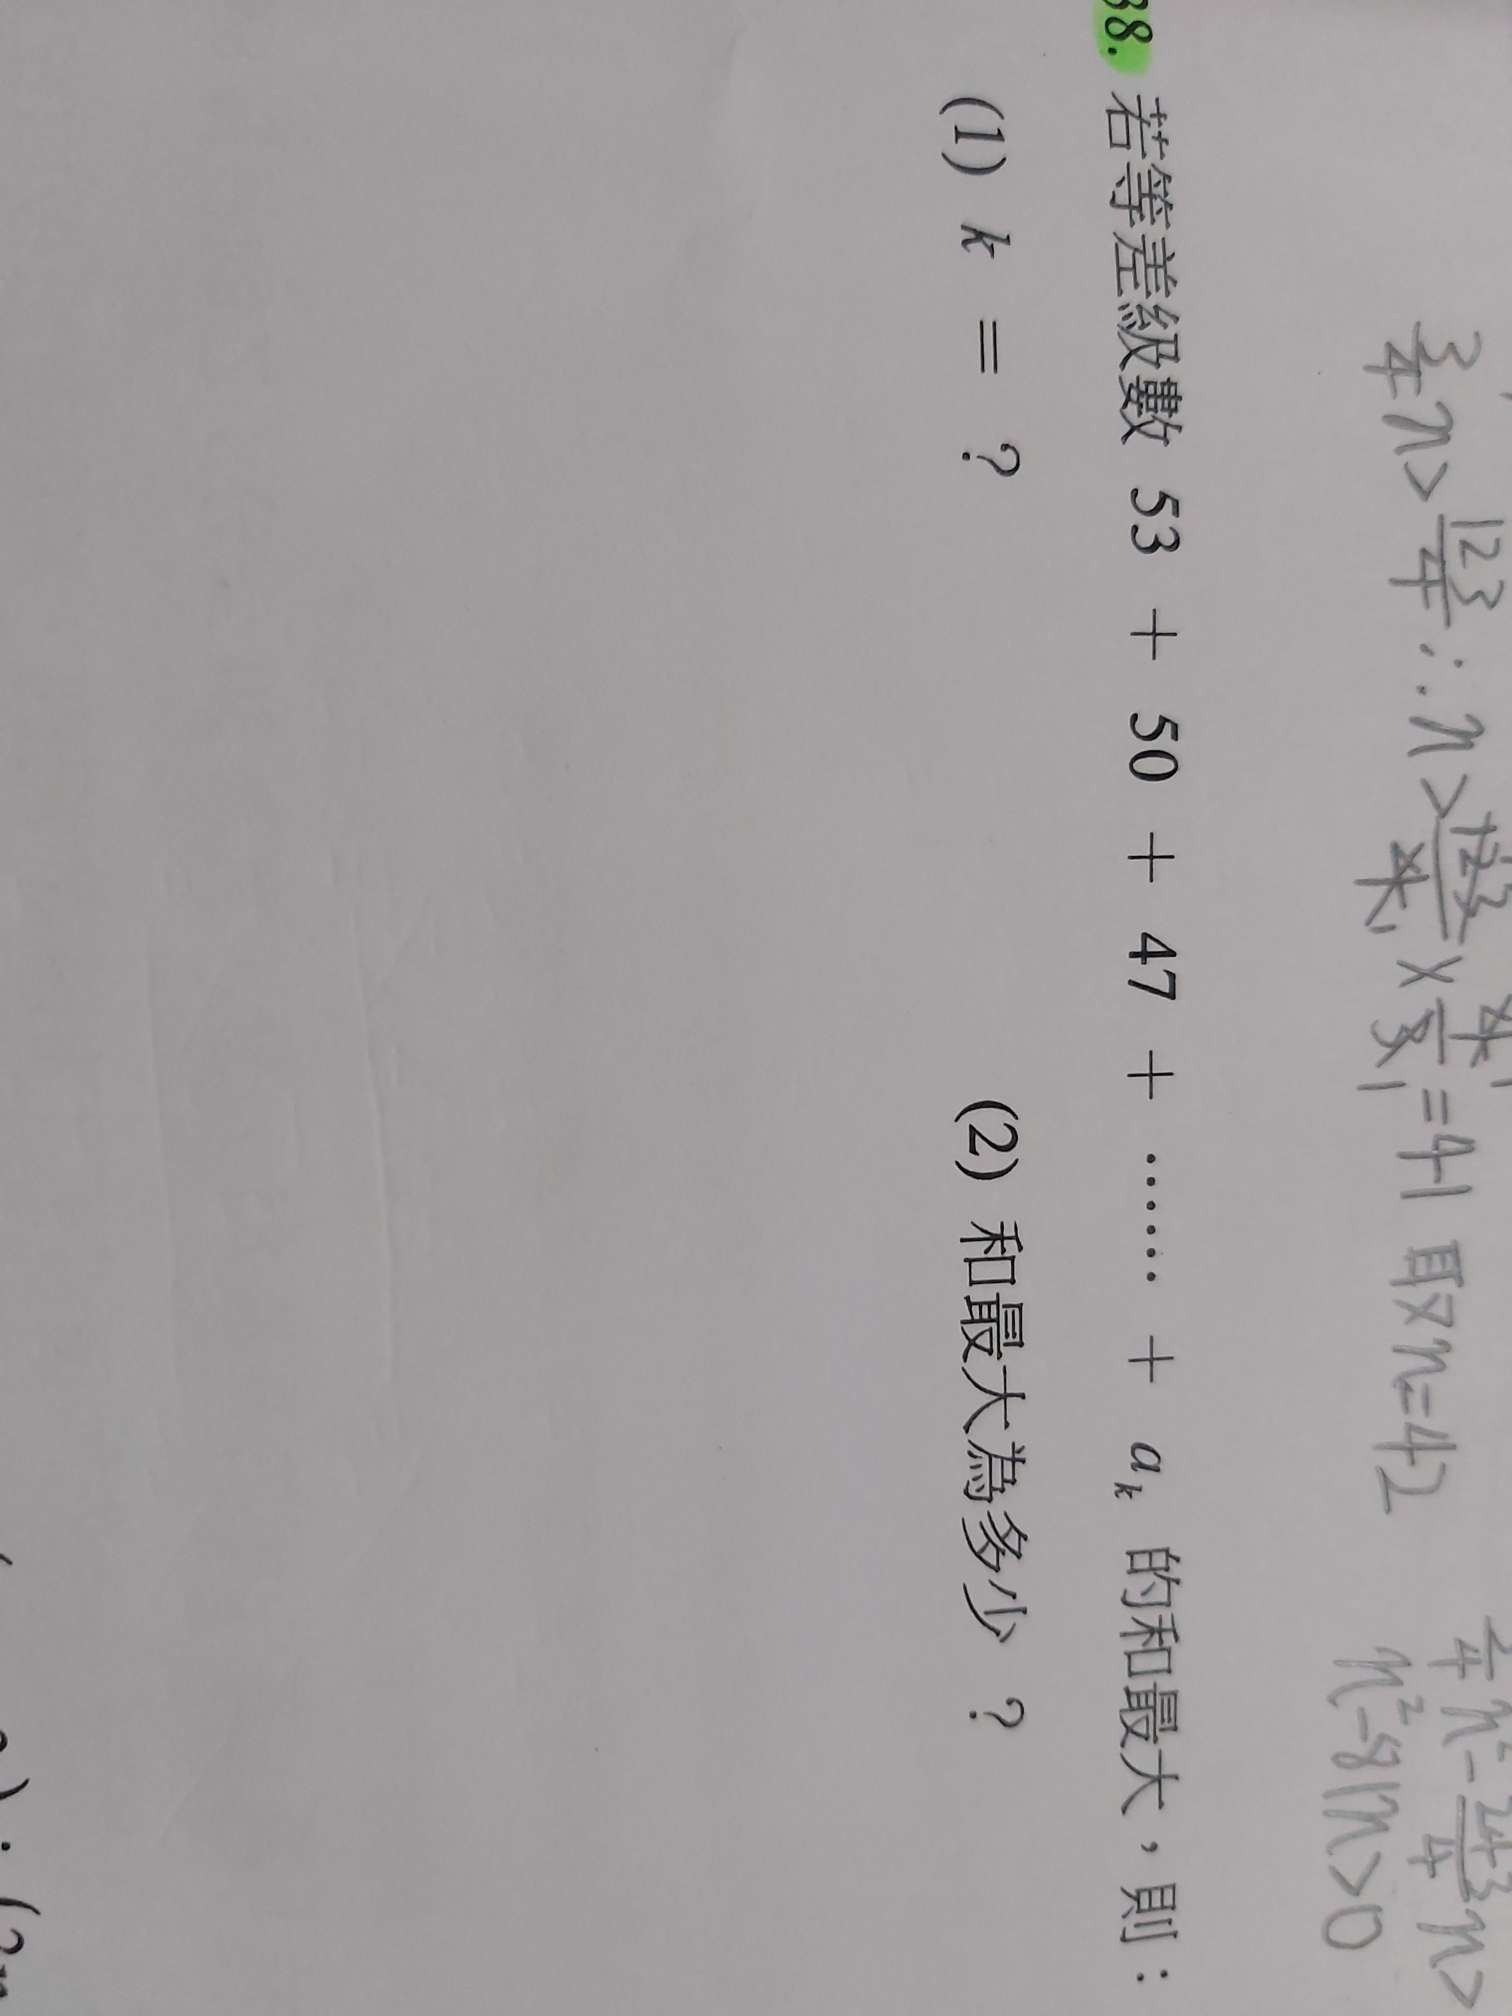 3/4 n > 123/4 ∴ n > 123/4 × 4/3 = 41 取 n = 42
n² - 243/4 n >
n² - 81n > 0
38. 若等差級數 53 + 50 + 47 + …… + aₖ 的和最大，則：
(1) k = ？ (2) 和最大為多少 ？